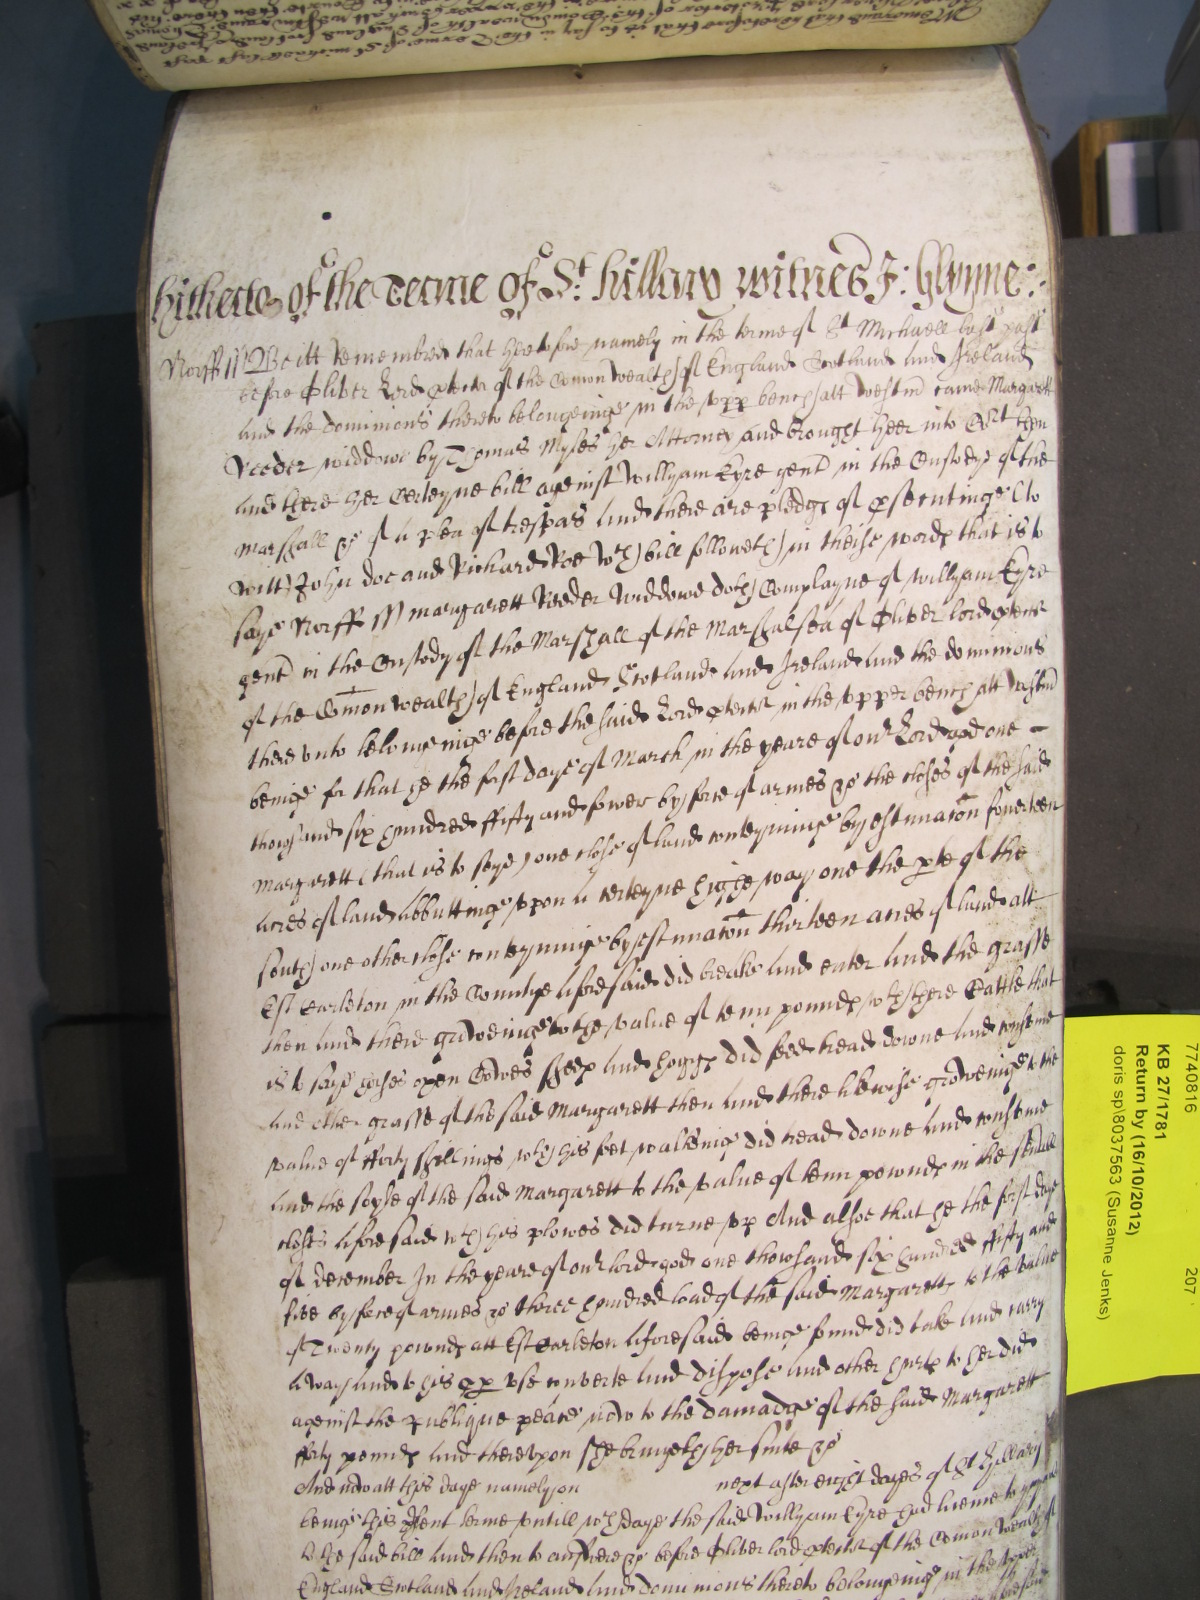 hitherto of the terme of St. hillary witnes J: Glynne:
Norff ss Be itt remembred that heretofore namely in the terme of St Michaell last past
before Oliver Lord ptector of the Comon wealth of England Scotland and Ireland
and the dominions thereto belongeinge in the upp bench att westm came Margarett
Reeder widdowe by Thomas Myles her Attorney and brought heer into Cort then
and there her Certeyne bill against willyam Eyre gent in the Custodye of the
Marshall &c of a plea of trespas and there are pledgs of psecutinge (to
witt) John doe and Richard Roe wch bill followeth in theise words that is to
saye Norff ss Margarett Reeder widdowe doth Complayne of willyam Eyre
gent in the Custody of the Marshall of the Marshalsea of Oliver lord ptector
of the Comon wealth of England Scotland and Ireland and the dominions
there unto belongeinge before the said Lord ptector in the upper bench att westm
beinge for that he the first daye of March in the yeare of our Lord god one
thowsand six hundred fifty and fower by force of armes &c the closes of the said
Margarett (that is to saye) one close of land conteyninge by estimacon fowerteen
acres of land abbuttinge upon a certeyne highe way one the pte of the
south one other close conteyninge by estimacon thirteen acres of land att
Est Carleton in the Countye aforesaid did breake and enter and the grasse
then and there groweinge to the value of tenn pounds wth there Cattle that
is to saye horses oxen Cowes sheep and hoggs did feed tread downe and consume
and other grasse of the said Margarett then and there likewise groweinge to the
value of fforty shillings wth his feet walkinge did tread downe and consume
and the soyle of the said Margarett to the value of tenn pownds in the sevall
closes aforesaid wth his plowes did turne up And alsoe that he the first daye
of december In the yeare of our lord god one thowsand six hundred ffifty and
five by force of armes &c three hundred load of the said Margarett to the value
of Twenty pownds att Est Carleton aforesaid beinge found did take and carry
away and to his pp use converte and dispose and other hurts to her did
against the publique peace now to the damadge of the said Margarett
fforty pownds and thereupon she bringeth her suite &c
And now att this daye namely on next after eight dayes of St Hillary
beinge this psent terme untill wch daye the said willyam Eyre had lycence to
to the said bill and then to answere &c before Oliver lord ptector of the Comon wealth of
England Scotland and Ireland and dominions thereto belongeinge in the upper
7740816 207
KB 27/1781
Return by (16/10/2012)
doris sp\8037563 (Susanne Jenks)